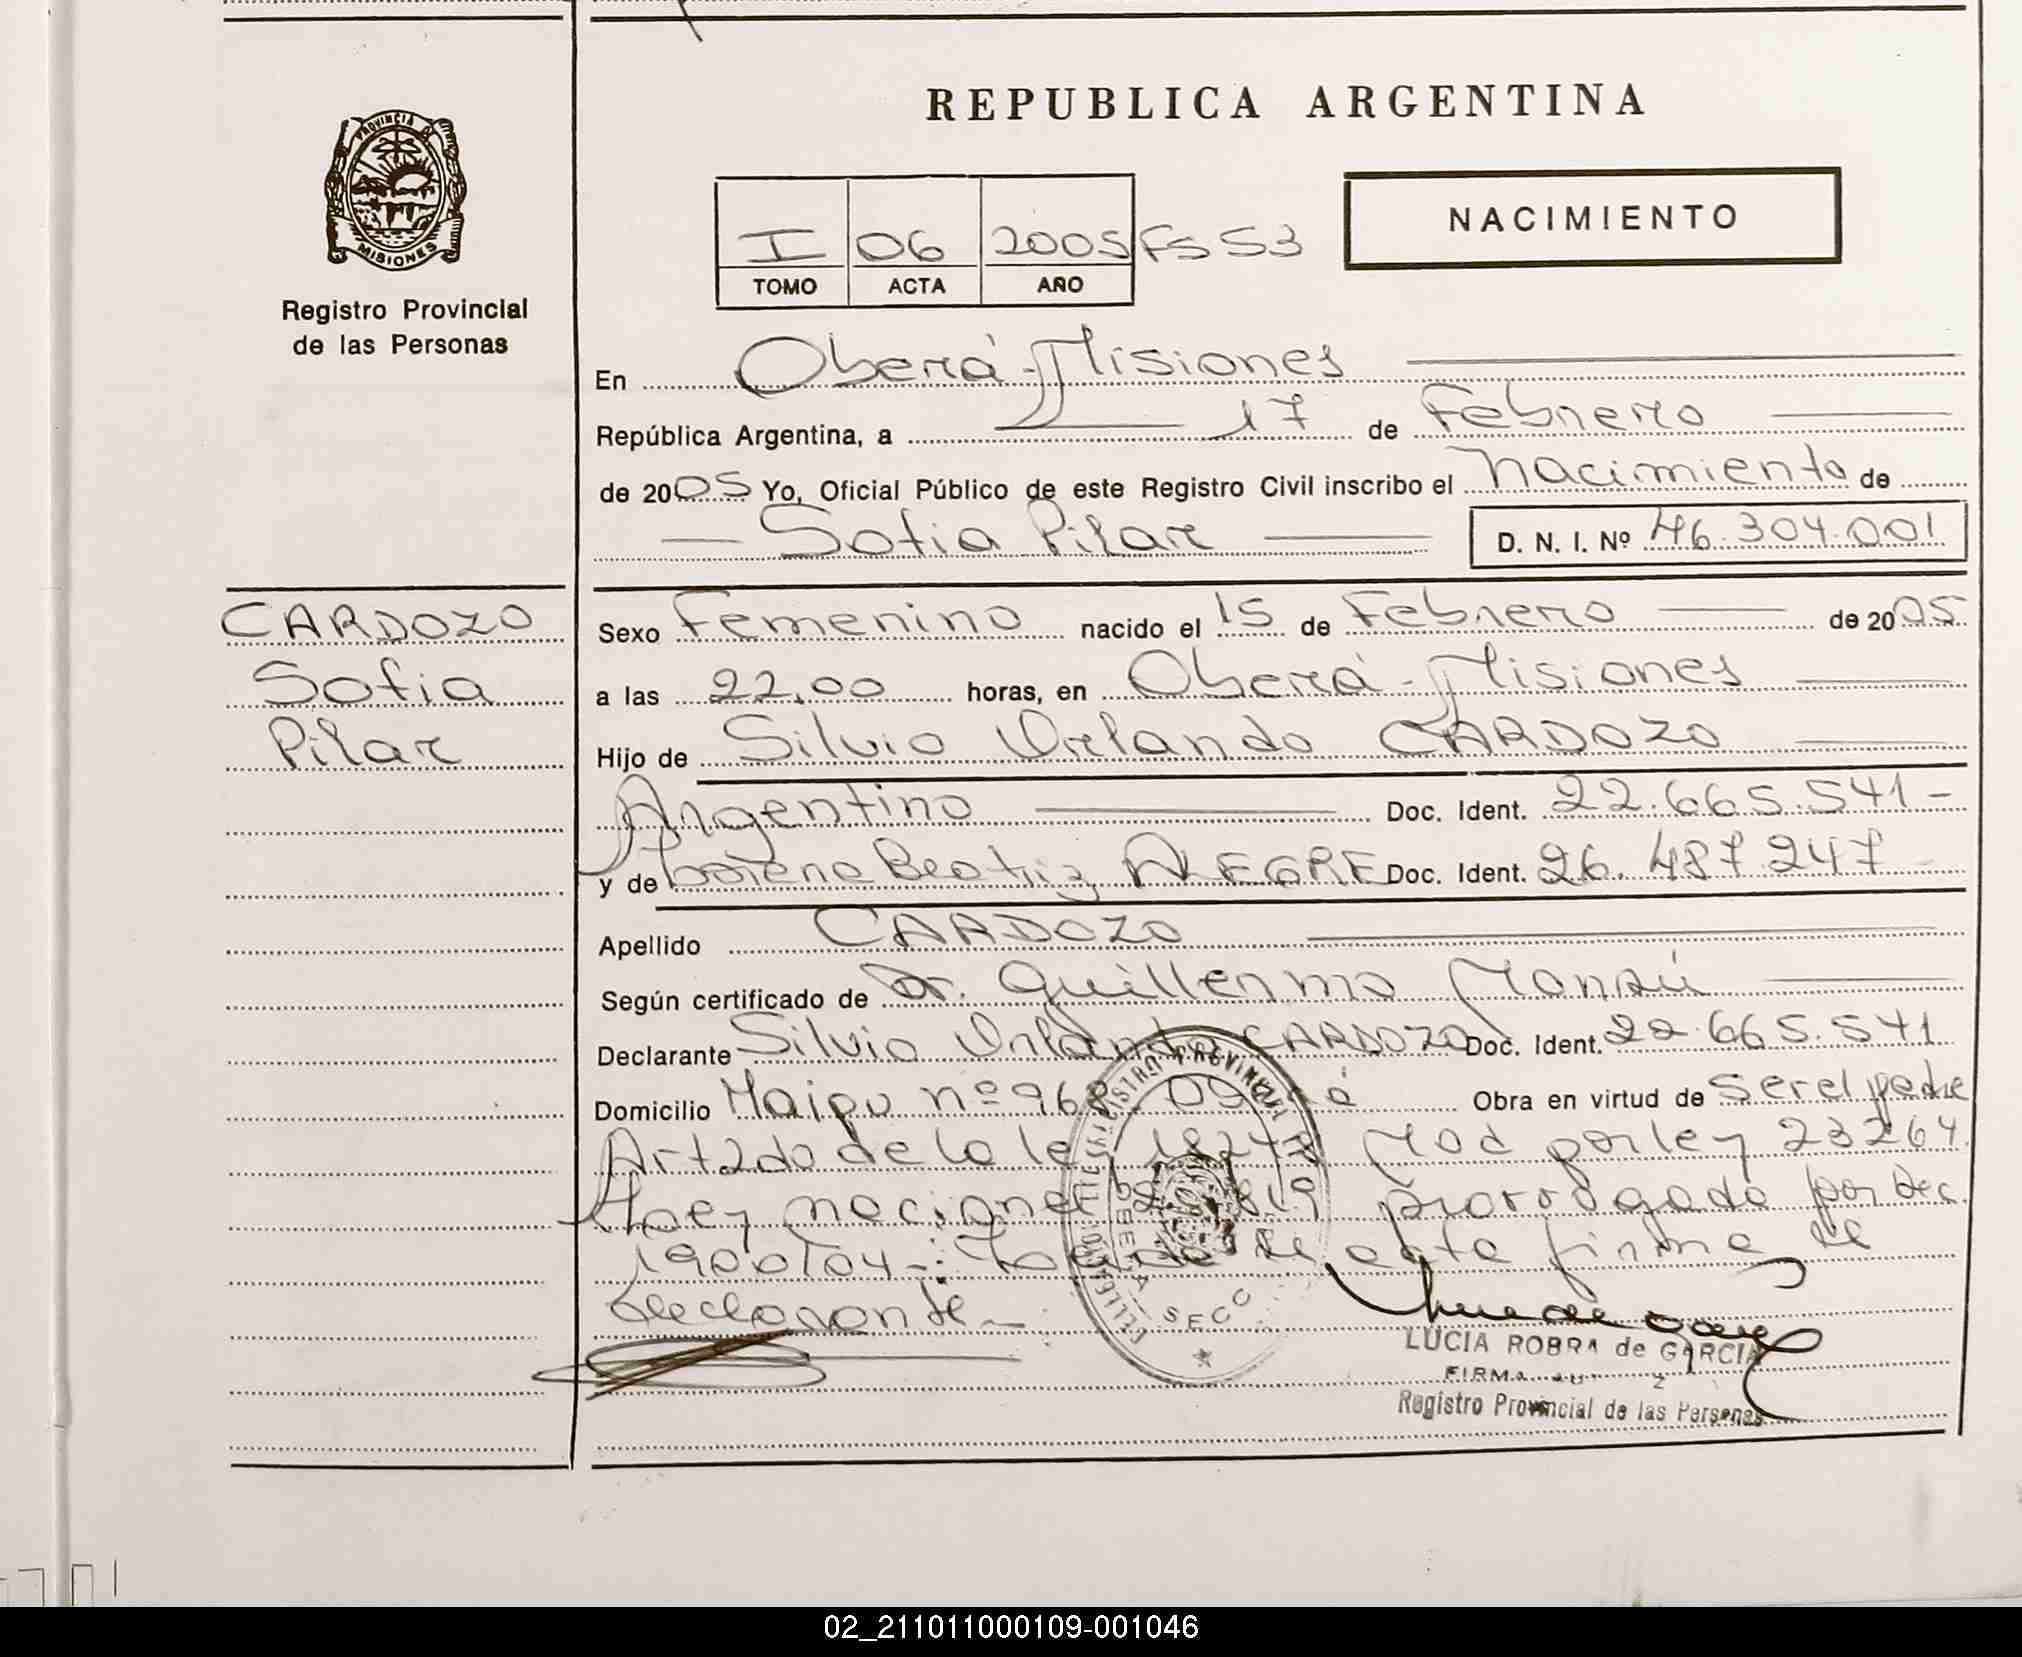 REPUBLICA ARGENTINA
PROVINCIA DE
MISIONES
Registro Provincial
de las Personas
I 06 2005 Fs 53
TOMO ACTA AÑO
NACIMIENTO
En Oberá - Misiones
República Argentina, a 17 de Febrero
de 2005 Yo, Oficial Público de este Registro Civil inscribo el Nacimiento de
Sofia Pilar D. N. I. Nº 46.304.001
CARDOZO
Sofia
Pilar
Sexo Femenino nacido el 15 de Febrero de 2005
a las 22,00 horas, en Oberá - Misiones
Hijo de Silvio Orlando CARDOZO
Argentino Doc. Ident. 22.665.541-
y de Lorena Beatriz ALEGRE Doc. Ident. 26.487.247-
Apellido CARDOZO
Según certificado de Dr. Guillermo
Declarante Silvio Orlando CARDOZO Doc. Ident. 22.665.541
Domicilio Maipu nº 968 Oberá Obra en virtud de ser el padre
Art 2do de la ley 18248 Mod por ley 23264
ley nacional prorrogado por Dec.
1900/04-: de acta firma el
declarante-
LUCIA ROBRA de GARCIA
Registro Provincial de las Personas
02_211011000109-001046